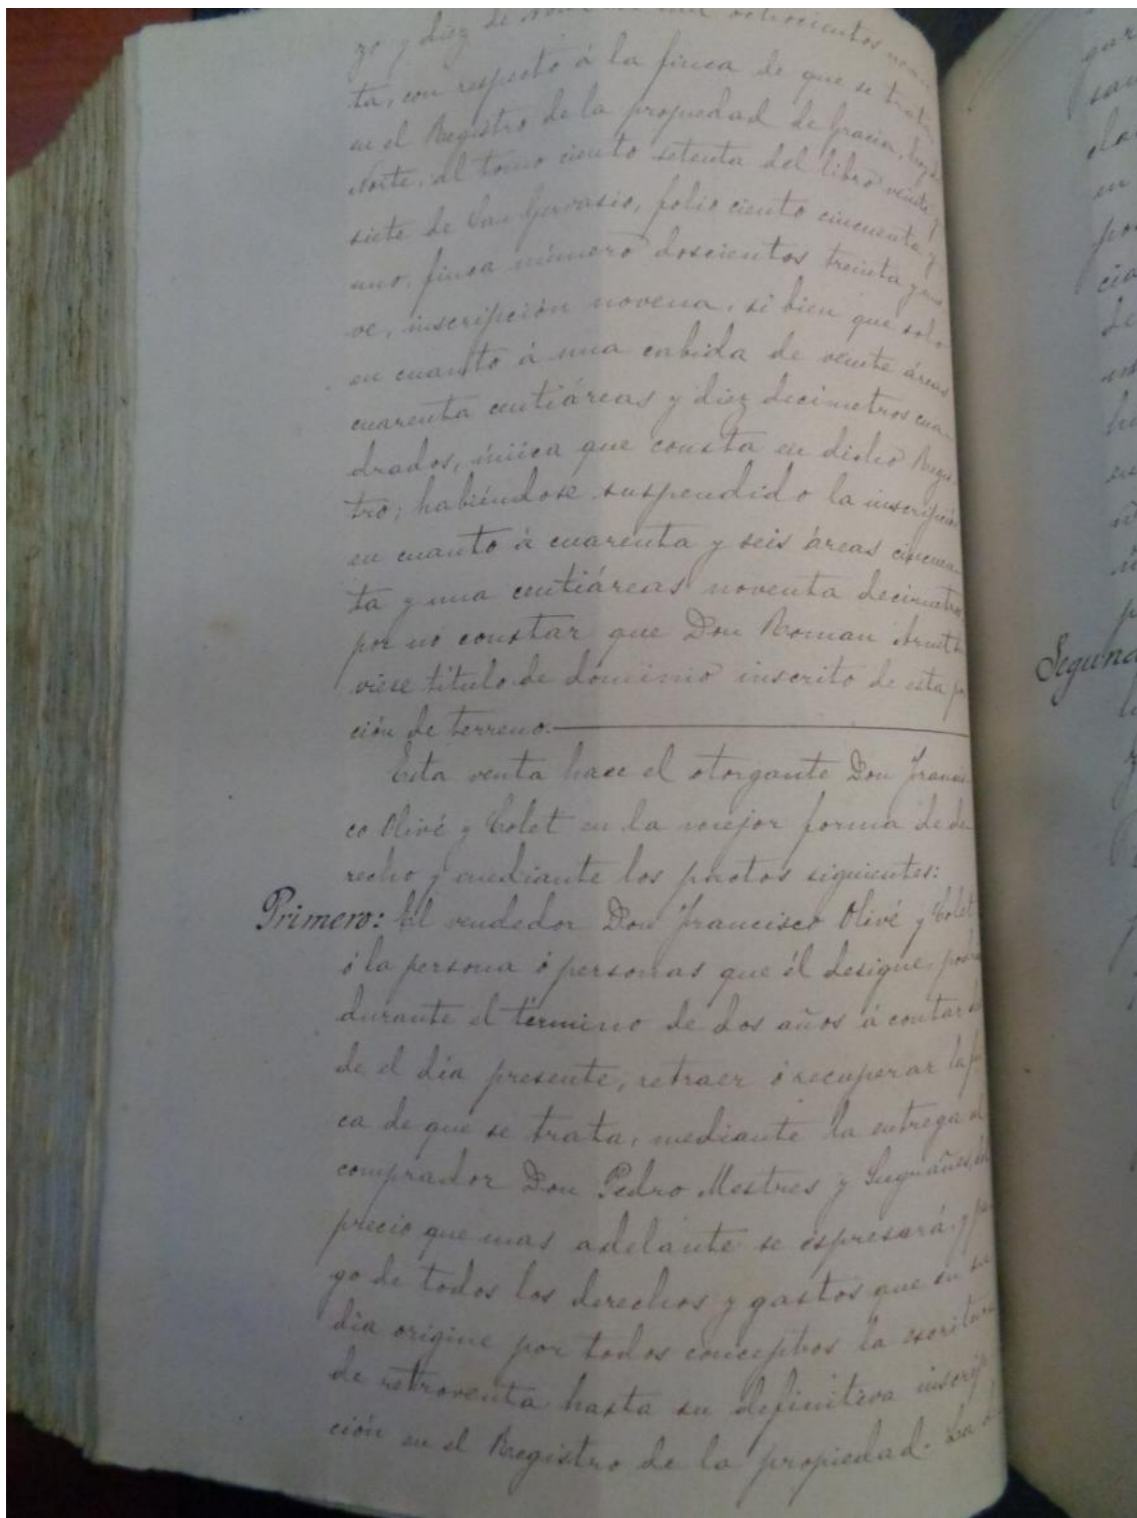 zo y diez de Nov mil ochocientos noven
ta, con respecto á la finca de que se trata
en el Registro de la propiedad de Gracia, hoy del
Norte, al tomo ciento setenta del libro veinte y
siete de San Gervasio, folio ciento cincuenta y
uno, finca número doscientos treinta y nue
ve, inscripción novena, si bien que solo
en cuanto á una cabida de veinte áreas
cuarenta centiáreas y diez decímetros cua-
drados, única que consta en dicho Regis-
tro; habiéndose suspendido la inscripción
en cuanto á cuarenta y seis áreas cincuen-
ta y una centiáreas noventa decímetros
por no constar que Don Roman Arnet
viese título de dominio inscrito de esta por
ción de terreno.
Esta venta hace el otorgante Don Francis
co Olivé y Colet en la mejor forma de de-
recho y mediante los pactos siguientes:
Primero: El vendedor Don Francisco Olivé y Colet
ó la persona ó personas que él designe, podrá
durante el término de dos años á contar des
de el dia presente, retraer ó recuperar la fin
ca de que se trata, mediante la entrega al
comprador Don Pedro Mestres y Sugrañes, del
precio que mas adelante se espresará, y pa
go de todos los derechos y gastos que en su
dia origine por todos conceptos la escritura
de retroventa hasta su definitiva inscrip
ción en el Registro de la propiedad. La
Segund